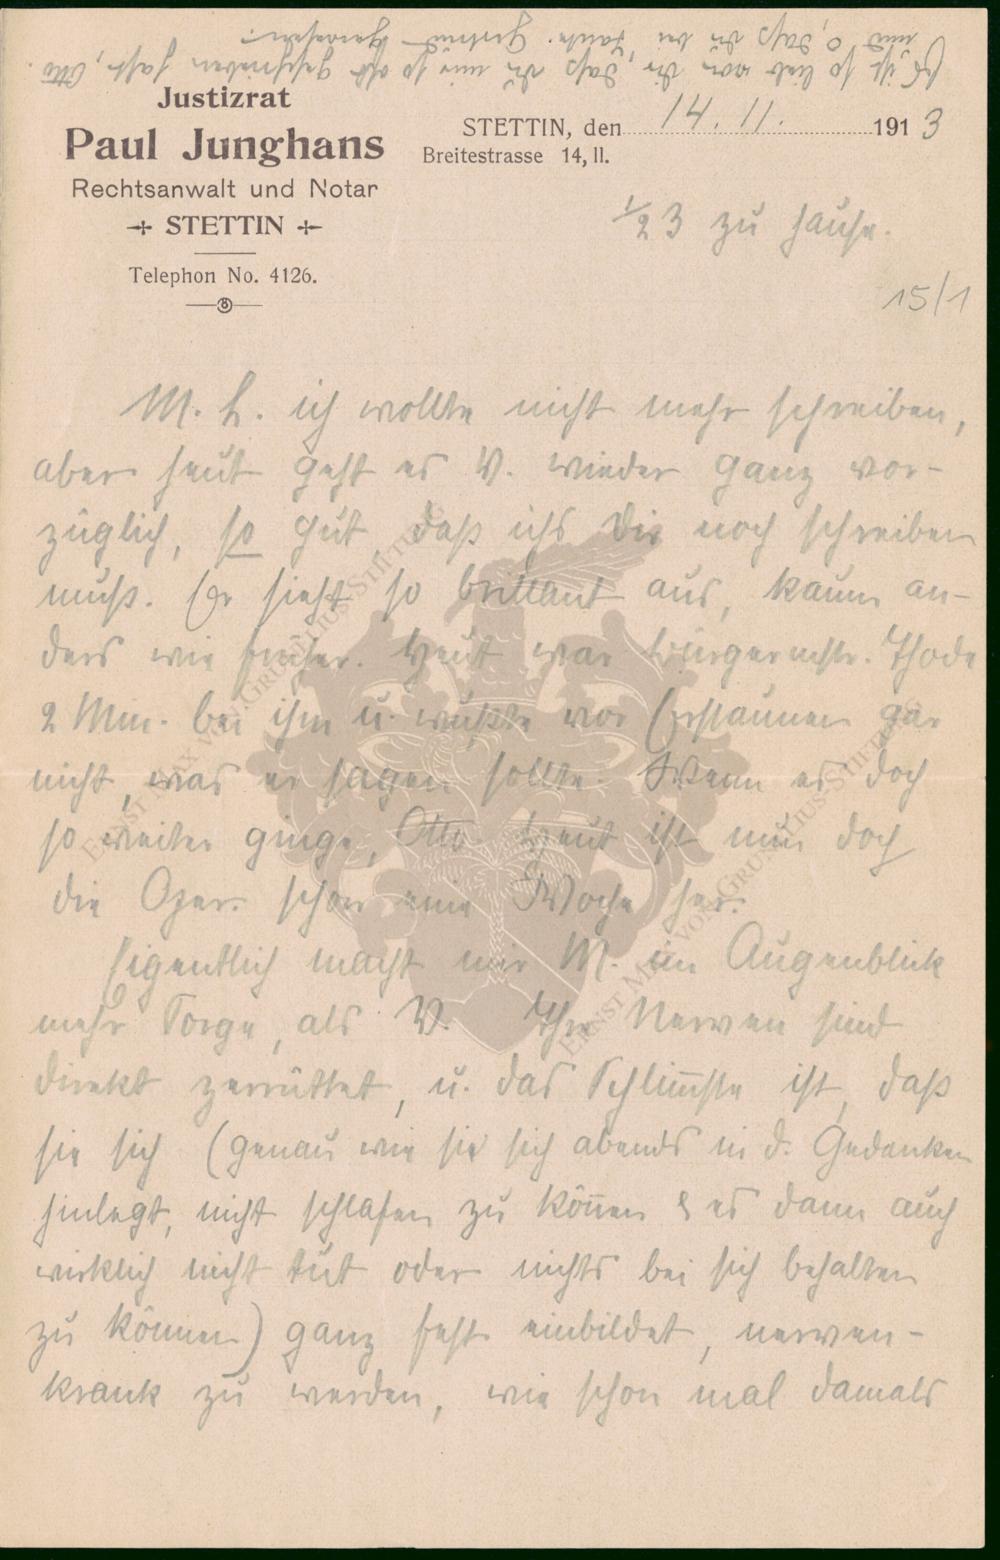 Es ist so lieb von Dir, daß Du mir so oft geschrieben hast, Otto.
und daß Du bei Tante Gertrud
Justizrat
Paul Junghans
Rechtsanwalt und Notar
STETTIN
Telephon No. 4126.
STETTIN, den 14. 11. 1913
Breitestrasse 14, II.
1/2 3 zu Hause.
15/1
M. L. ich wollte nicht mehr schreiben,
aber heut geht es V. wieder ganz vor-
züglich, so gut, daß ichs Dir noch schreiben
muß. Er sieht so brillant aus, kaum an-
ders wie früher. Heut war Bürgermstr. Thode
2 Min. bei ihm u. wußte vor Erstaunen gar
nicht, was er sagen sollte. Wenn es doch
so weiter ginge, Otto. Heut ist nun doch
die Oper. schon eine Woche her.
Eigentlich macht mir M. im Augenblick
mehr Sorge, als V. Ihre Nerven sind
direkt zerrüttet, u. das Schlimmste ist, daß
sie sich (genau wie sie sich abends in d. Gedanken
hinlegt, nicht schlafen zu können & es dann auch
wirklich nicht tut oder nichts bei sich behalten
zu können) ganz fest einbildet, nerven-
krank zu werden, wie schon mal damals
ERNST MAX VON GRUNELIUS-STIFTUNG
ERNST MAX VON GRUNELIUS-STIFTUNG